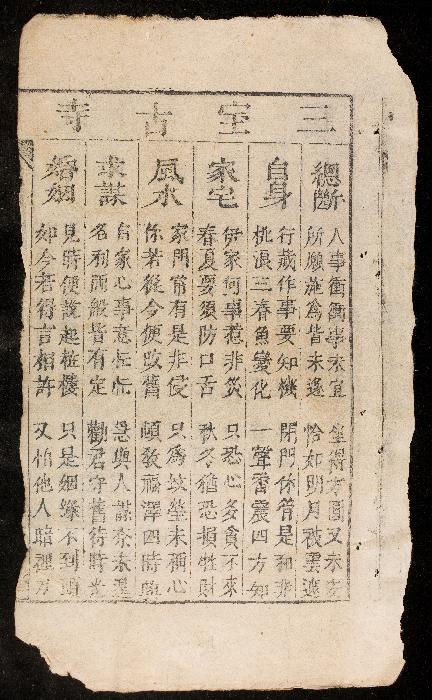 三宝古寺
總斷
人事衝衝事未宜 坐得方圓又未安
所願施為皆未遂 恰如明月被雲遮
自身
行藏作事要知機 閉門休管是和非
桃浪三春魚變化 一聲雷震四方知
家宅
伊家何事惹非災 只恐心多貪不來
春夏要須防口舌 秋冬猶恐損牲財
風水
家門常有是非侵 只為墳塋未稱心
你若從今便改舊 頓教福澤四時臨
求謀
自家心事意忙忙 急與人謀 未
名利兩般皆有定 勸君守舊待時光
婚姻
見時便說起粧樓 只是姻緣不到頭
如今若得言相許 又怕他人暗裡